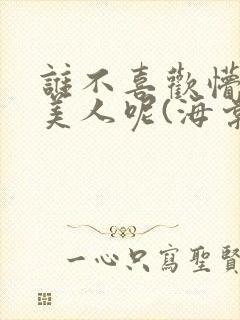 誰不喜歡懵
美人呢(海
一心只寫聖賢